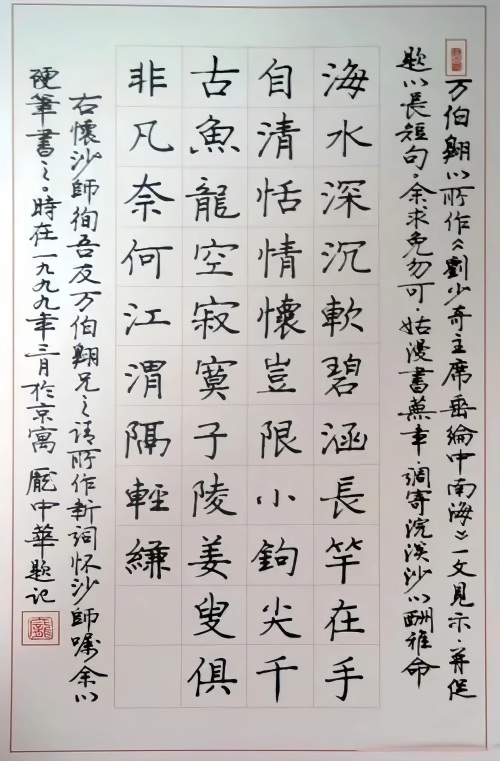 万伯翱以所作《劉少奇主席垂綸中南海》一文見示.并促
題以長短句。余求免勿可.姑漫書蕪章.調寄浣溪沙以酬雅命
海水深沉軟碧涵長竿在手
自清恬情懷豈限小鉤尖千
古魚龍空寂寞子陵姜叟俱
非凡奈何江渭隔輕縑
右懷沙師徇吾友万伯翱兄之請所作新詞怀沙師嘱余以
硬筆書之。時在一九九九年三月於京寓 龐中華題记
龐